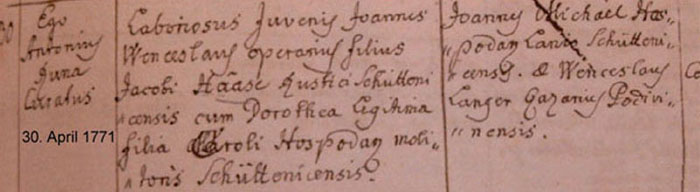 Ego
Antonius
Duna
Curatus
30. April 1771
Laboriosus Juvenis Joannes
Wenceslaus operarius filius
Jacobi Haase Rustici Schütteni
censis cum Dorothea legitima
filia Caroli Hospodaÿ moli-
"toris Schüttenicensis.
Joannes Michael Hos-
"podaÿ Lanio Schütteni
"censis. & Wenceslaus
Langer Gazarius Podivi-
"nensis.